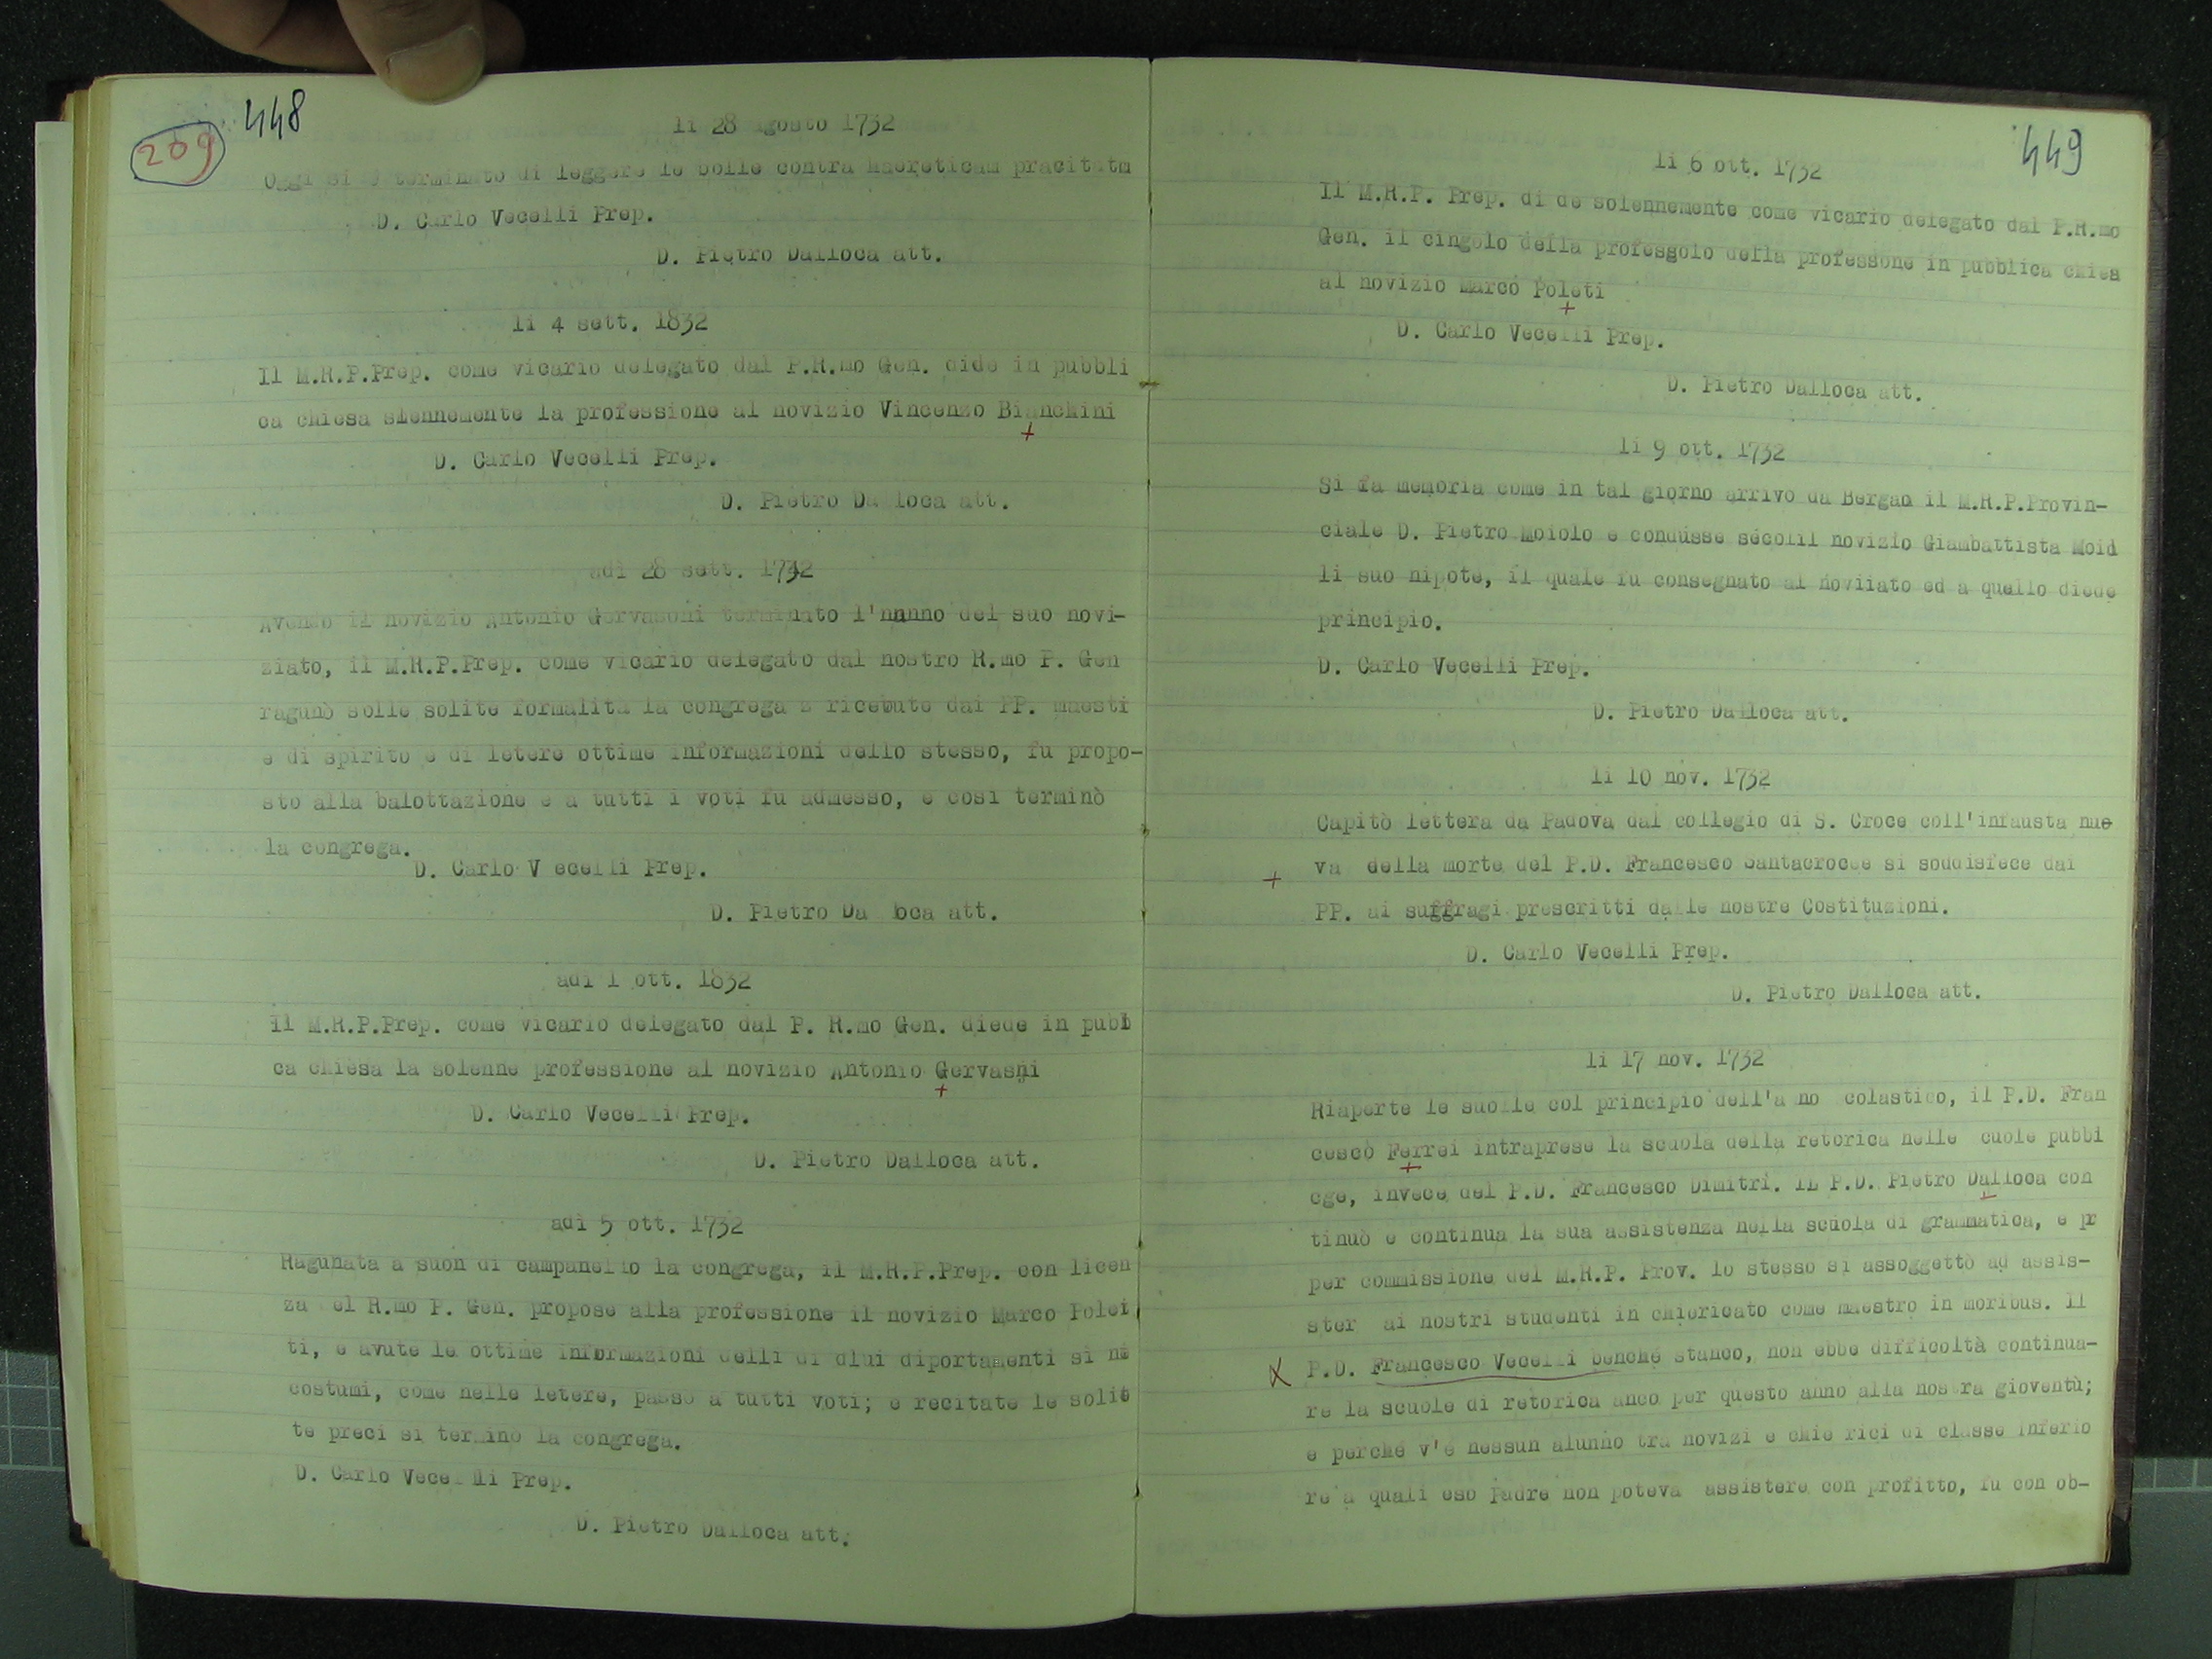 448
269
li 28 agosto 1732
Oggi si è terminato di leggere le bolle contra haereticam pracitatm
D. Carlo Vecelli Prep.
D. Pietro Dalloca att.
li 4 sett. 1832
Il M.R.P.Prep. come vicario delegato dal P.R.mo Gen. dide in pubbli
ca chiesa slennemente la professione al novizio Vincenzo Bianchini
+
D. Carlo Vecelli Prep.
D. Pietro Da loca att.
adì 28 sett. 1732
Avendo il novizio Antonio Gervasoni terminato l'nnnno del suo novi-
ziato, il M.R.P.Prep. come vicario delegato dal nostro R.mo P. Gen
ragunò solle solite formalità la congrega e ricebute dai PP. maesti
e di spirito e di letere ottime informazioni dello stesso, fu propo-
sto alla balottazione e a tutti i voti fu admesso, e così terminò
la congrega.
D. Carlo V ecelli Prep.
D. Pietro Da loca att.
adì 1 ott. 1832
Il M.R.P.Prep. come vicario delegato dal P. R.mo Gen. diede in pubb
ca chiesa la solenne professione al novizio Antonio Gervasni
+
D. Carlo Vecelli Prep.
D. Pietro Dalloca att.
adì 5 ott. 1732
Ragunata a suon di campanello la congrega, il M.R.P.Prep. con licen
za del R.mo P. Gen. propose alla professione il novizio Marco Polei
ti, e avute le ottime informazioni delli di dlui diportamenti sì ne
costumi, come nelle letere, passò a tutti voti; e recitate le solit
te preci si terminò la congrega.
D. Carlo Vecelli Prep.
D. Pietro Dalloca att.
449
li 6 ott. 1732
Il M.R.P. Prep. di de solennemente come vicario delegato dal P.R.mo
Gen. il cingolo della profesgolo della professone in pubblica chies
al novizio Marco Poleti
+
D. Carlo Vecelli Prep.
D. Pietro Dalloca att.
li 9 ott. 1732
Si fa memoria come in tal giorno arrivò da Bergao il M.R.P.Provin-
ciale D. Pietro Moiolo e condusse sècolil novizio Giambattista Moid
li suo nipote, il quale fu consegnato al noviiato ed a quello diede
principio.
D. Carlo Vecelli Prep.
D. Pietro Dalloca att.
li 10 nov. 1732
Capitò lettera da Padova dal collegio di S. Croce coll'infausta nue
+ va della morte del P.D. Francesco Santacroce si soddisfece dai
PP. ai suffragi prescritti dalle nostre Costituzioni.
D. Carlo Vecelli Prep.
D. Pietro Dalloca att.
li 17 nov. 1732
Riaperte le suolle col principio dell'a no colastico, il P.D. Fran
cesco Ferrei intraprese la scuola della retorica nelle cuole pubbi
+
cge, invece del P.D. Francesco Dimitri. IL P.D. Pietro Dalloca con
+
tinuò e continua la sua assistenza nella scuola di grammatica, e pr
per commissione del M.R.P. Prov. lo stesso si assoggettò ad assis-
ster ai nostri studenti in chiericato come maestro in moribus. Il
X P.D. Francesco Vecelli benché stanco, non ebbe difficoltà continua-
re la scuole di retorica anco per questo anno alla nostra gioventù;
e perché v'è nessun alunno tra novizi e chie rici di classe inferio
re a quali eso padre non poteva assistere con profitto, fu con ob-